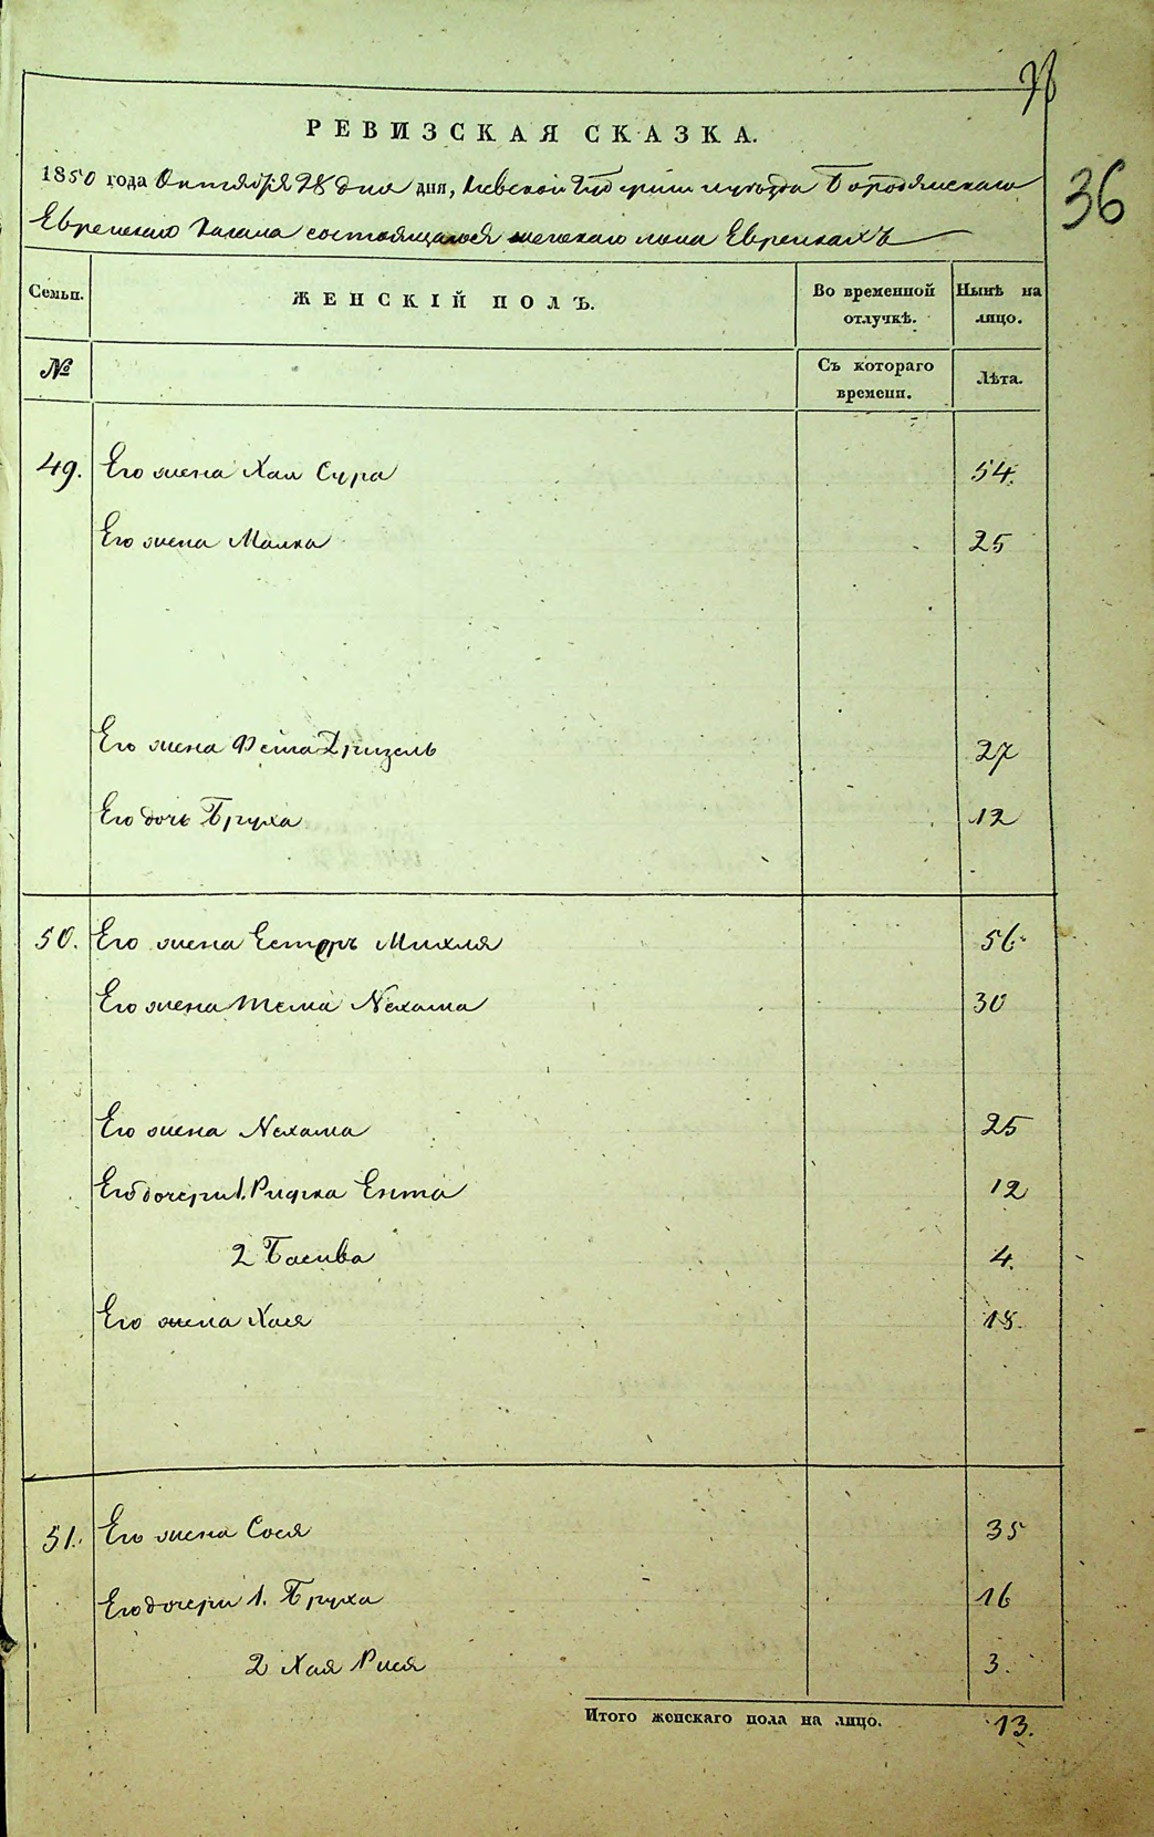 36
РЕВИЗСКАЯ СКАЗКА.
1850 года Октября 28 дня дня, Киевской Губернии и уезда Бородянскаго
Еврейскаго Кагала состоящагося женскаго пола Евреикахъ
Семьи. ЖЕНСКІЙ ПОЛЪ. Во временной отлучкѣ. Нынѣ на лицо.
№ Съ котораго времени. Лѣта.
49. Его жена Хая Сура 54.
Его жена Малка 25
Его жена Фейга 27
Его дочь Бруха 12
50. Его жена Естеръ Михля 56
Его жена Тема Нехама 30
Его жена Нехама 25
Его дочери 1. Рифка Ента 12
2 Басива 4.
Его жена Хася 18.
51. Его жена Сося 35
Его дочери 1. Бруха 16
2 Хая Рися 3.
Итого женскаго пола на лицо. 13.